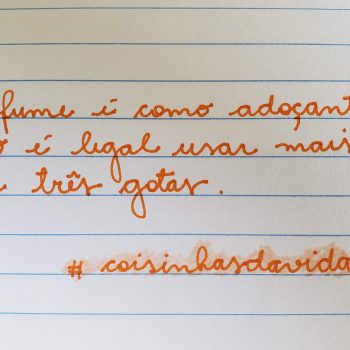 fume é como adoçant
o é legal usar mais
e três gotas.
# coisinhasdavida